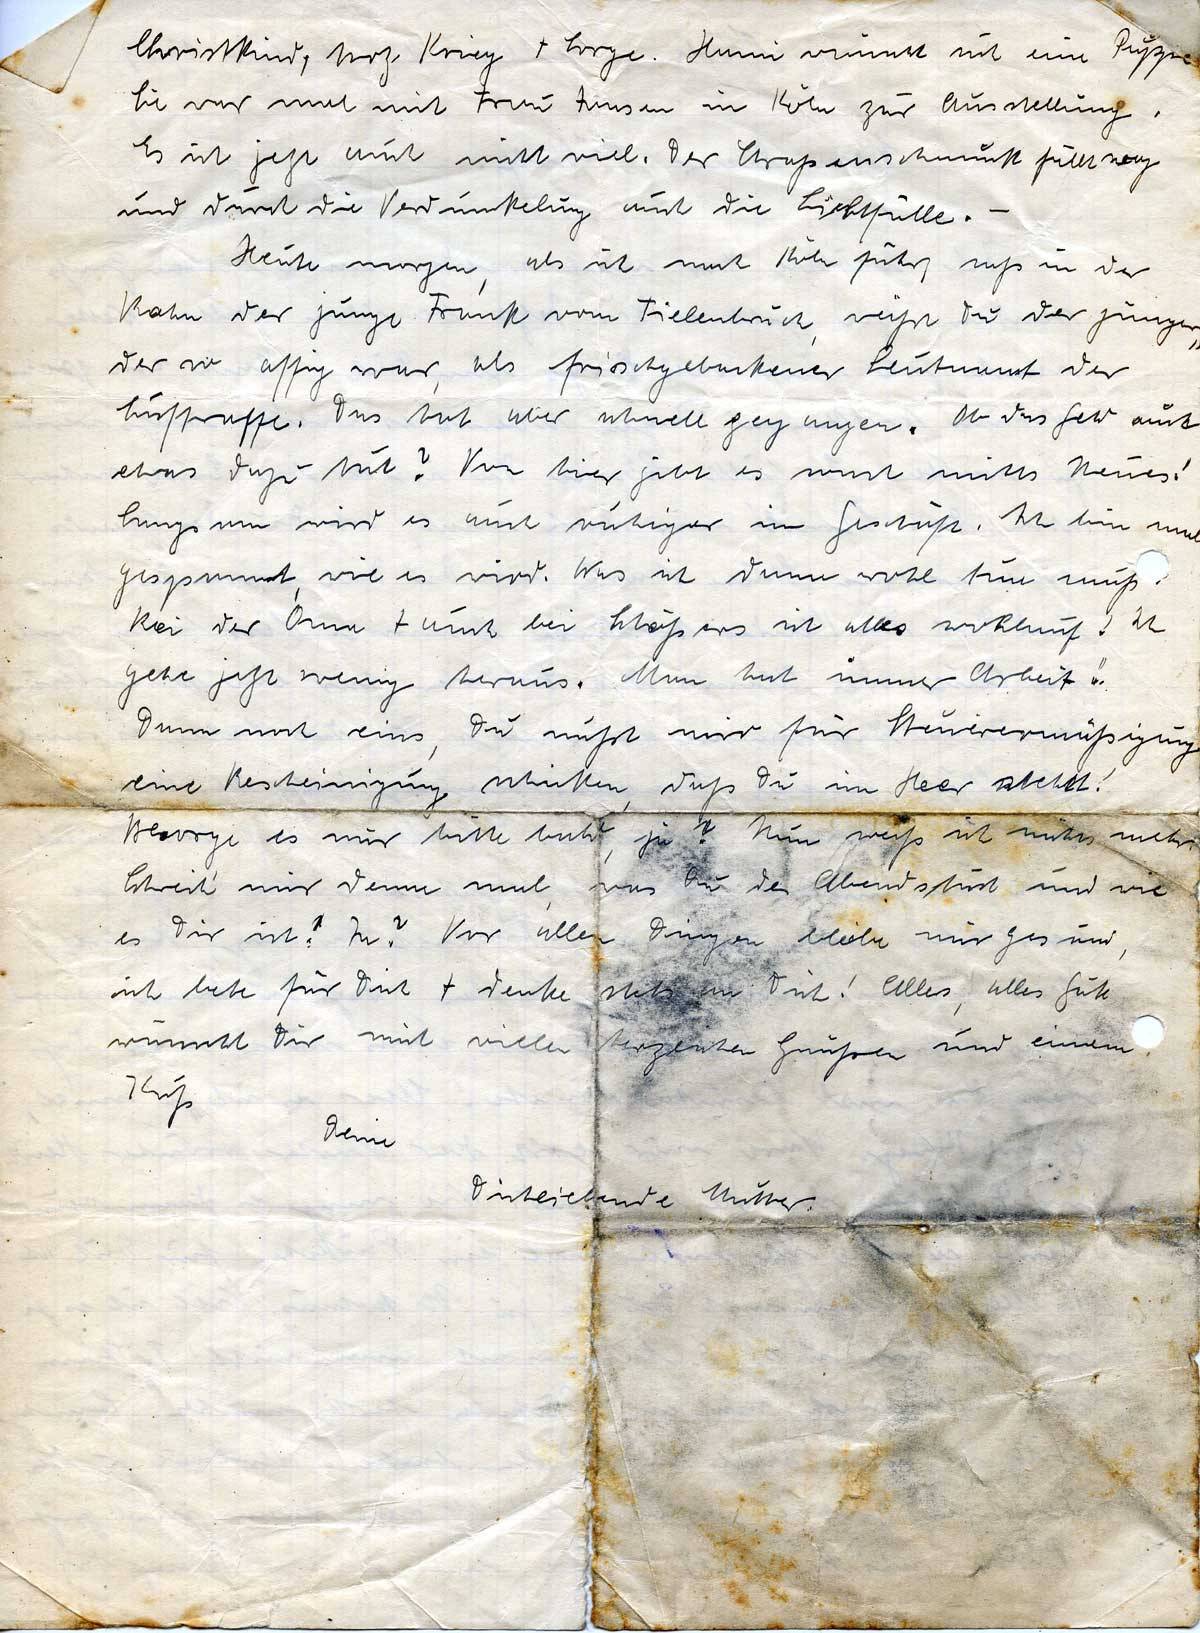 Christkind, trotz Krieg + Sorge. Hanni wünscht sich eine Puppe.
Sie war mal mit Frau Jansen in Köln zur Ausstellung.
Es ist jetzt auch nicht viel. Der Straßenschmuck fällt weg
und durch die Verdunkelung auch die Lichtfülle. –
Heute morgen, als ich nach Köln fuhr, saß in der
Bahn der junge Frank vom Thielenbruch, weißt Du der jüngere,
der so affig war, als frischgebackener Leutnant der
Luftwaffe. Das hat aber schnell gegangen. Ob das Geld auch
etwas dazu tut? Von hier gibt es sonst nichts Neues!
Langsam wird es auch ruhiger im Geschäft. Ich bin mal
gespannt, wie es wird. Was ich dann wohl tun muß?
Bei der Oma + auch bei Schäfers ist alles wohlauf! Ich
gehe jetzt wenig heraus. Man hat immer Arbeit!!
Dann noch eins, Du mußt mir für Steuerermäßigung
eine Bescheinigung schicken, daß Du im Heer stehst!
Besorge es mir bitte bald, ja? Nun weiß ich nichts mehr.
Schreib mir denn mal, was Du des Abends tust und wie
es Dir ist! Ja? Vor allen Dingen bleibe mir gesund,
ich bete für Dich + denke stets an Dich! Alles, alles Gute
wünscht Dir mit vielen herzlichen Grüßen und einem
Kuß
Deine
Dichliebende Mutter.